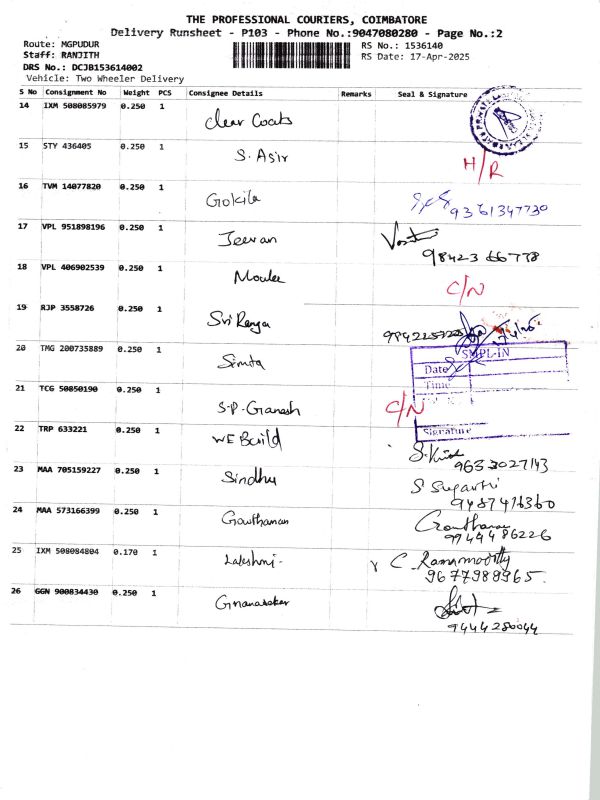 THE PROFESSIONAL COURIERS, COIMBATORE
Delivery Runsheet - P103 - Phone No.:9047080280 - Page No.:2
Route: MGPUDUR
RS No.: 1536140
Staff: RANJITH
RS Date: 17-Apr-2025
DRS No.: DCJB153614002
Vehicle: Two Wheeler Delivery
S No Consignment No Weight PCS Consignee Details Remarks Seal & Signature
14 IXM 508085979 0.250 1 Clear Coats
15 STY 436405 0.250 1 S. Asir H/R
16 TVM 14077820 0.250 1 Gokila 9361347730
17 VPL 951898196 0.250 1 Jeevan 9842366778
18 VPL 406902539 0.250 1 Moulee C/N
19 RJP 3558726 0.250 1 Sri Ranga
20 TMG 200735889 0.250 1 Simta
SMPL-IN
Date
Time
21 TCG 50850190 0.250 1 S.P. Ganesh C/N
Signature
22 TRP 633221 0.250 1 WE Build 9633027143
23 MAA 705159227 0.250 1 Sindhu S Suganthi
9487416360
24 MAA 573166399 0.250 1 Gowthaman Gowthaman
9944486226
25 IXM 508084804 0.170 1 Lakshmi C. Ramamoorthy
9677989965.
26 GGN 900834430 0.250 1 Gnanasekar
9444280044